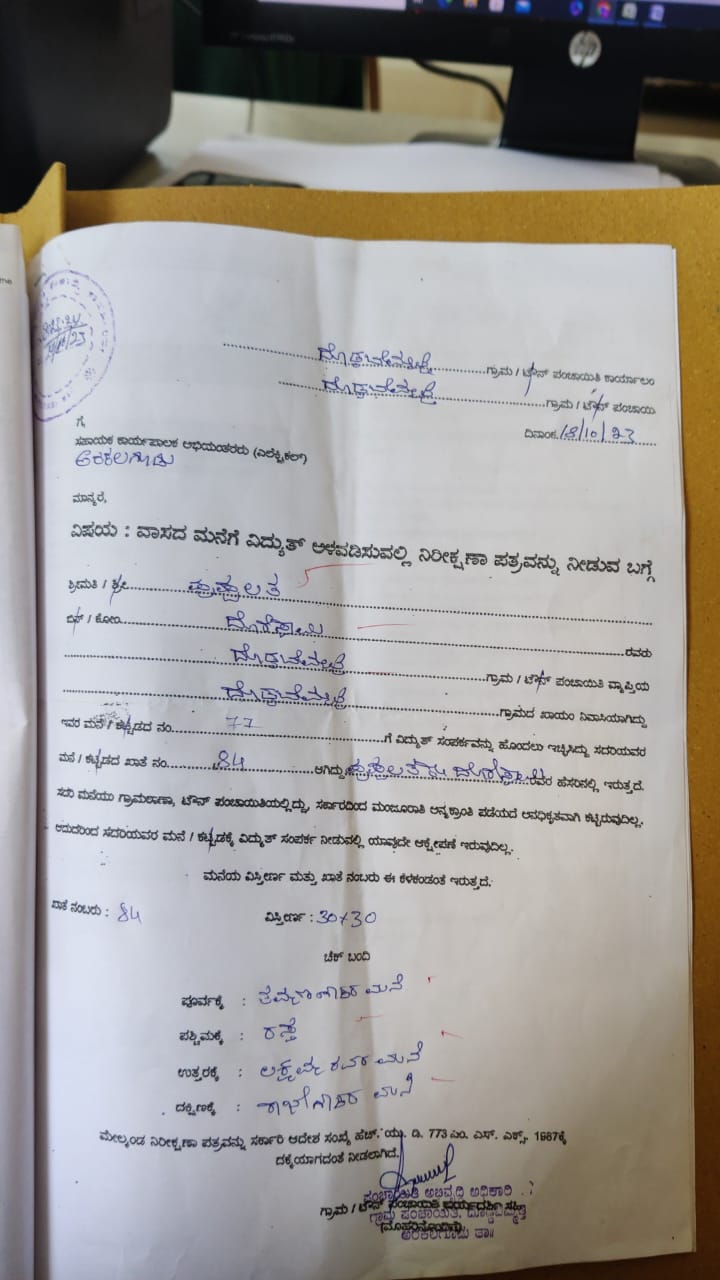 ದೊಡ್ಡಬೆಮ್ಮತ್ತಿ ಗ್ರಾಮ / ಟೌನ್ ಪಂಚಾಯಿತಿ ಕಾರ್ಯಾಲಂ
ದೊಡ್ಡಬೆಮ್ಮತ್ತಿ ಗ್ರಾಮ / ಟೌನ್ ಪಂಚಾಯಿ
ದಿನಾಂಕ: 18/10/23
ಗೆ,
ಸಹಾಯಕ ಕಾರ್ಯಪಾಲಕ ಅಭಿಯಂತರರು (ಎಲೆಕ್ಟ್ರಿಕಲ್)
ಅರಕಲಗೂಡು
ಮಾನ್ಯರೆ,
ವಿಷಯ : ವಾಸದ ಮನೆಗೆ ವಿದ್ಯುತ್ ಅಳವಡಿಸುವಲ್ಲಿ ನಿರೀಕ್ಷಣಾ ಪತ್ರವನ್ನು ನೀಡುವ ಬಗ್ಗೆ
ಶ್ರೀಮತಿ / ಶ್ರೀ ಪುಷ್ಪಲತ
ಬಿನ್ / ಕೋಂ ರವರು
ದೊಡ್ಡಬೆಮ್ಮತ್ತಿ ಗ್ರಾಮ / ಟೌನ್ ಪಂಚಾಯಿತಿ ವ್ಯಾಪ್ತಿಯ
ದೊಡ್ಡಬೆಮ್ಮತ್ತಿ ಗ್ರಾಮದ ಖಾಯಂ ನಿವಾಸಿಯಾಗಿದ್ದು
ಇವರ ಮನೆ / ಕಟ್ಟಡದ ನಂ. 77 ಗೆ ವಿದ್ಯುತ್ ಸಂಪರ್ಕವನ್ನು ಹೊಂದಲು ಇಚ್ಛಿಸಿದ್ದು ಸದರಿಯವರ
ಮನೆ / ಕಟ್ಟಡದ ಖಾತೆ ನಂ. 84 ಆಗಿದ್ದು ಪುಷ್ಪಲತ ರವರ ಹೆಸರಿನಲ್ಲಿ ಇರುತ್ತದೆ.
ಸದರಿ ಮನೆಯು ಗ್ರಾಮಠಾಣಾ, ಟೌನ್ ಪಂಚಾಯಿತಿಯಲ್ಲಿದ್ದು, ಸರ್ಕಾರದಿಂದ ಮಂಜೂರಾತಿ ಅನ್ಯಕ್ರಾಂತಿ ಪಡೆಯದೆ ಅನಧಿಕೃತವಾಗಿ ಕಟ್ಟಿರುವುದಿಲ್ಲ.
ಆದುದರಿಂದ ಸದರಿಯವರ ಮನೆ / ಕಟ್ಟಡಕ್ಕೆ ವಿದ್ಯುತ್ ಸಂಪರ್ಕ ನೀಡುವಲ್ಲಿ ಯಾವುದೇ ಆಕ್ಷೇಪಣೆ ಇರುವುದಿಲ್ಲ.
ಮನೆಯ ವಿಸ್ತೀರ್ಣ ಮತ್ತು ಖಾತೆ ನಂಬರು ಈ ಕೆಳಕಂಡಂತೆ ಇರುತ್ತದೆ.
ಖಾತೆ ನಂಬರು : 84 ವಿಸ್ತೀರ್ಣ : 30x30
ಚೆಕ್ ಬಂದಿ
ಪೂರ್ವಕ್ಕೆ : ಮನೆ
ಪಶ್ಚಿಮಕ್ಕೆ : ರಸ್ತೆ
ಉತ್ತರಕ್ಕೆ : ಲಕ್ಷ್ಮಮ್ಮ ರವರ ಮನೆ
ದಕ್ಷಿಣಕ್ಕೆ : ಮನೆ
ಮೇಲ್ಕಂಡ ನಿರೀಕ್ಷಣಾ ಪತ್ರವನ್ನು ಸರ್ಕಾರಿ ಆದೇಶ ಸಂಖ್ಯೆ ಹೆಚ್. ಯು. ಡಿ. 773 ಎಂ. ಎನ್. ಎಕ್ಸ್. 1987ಕ್ಕೆ
ದಕ್ಕೆಯಾಗದಂತೆ ನೀಡಲಾಗಿದೆ.
ಪಂಚಾಯಿತಿ ಅಭಿವೃದ್ಧಿ ಅಧಿಕಾರಿ
ಗ್ರಾಮ / ಟೌನ್ ಪಂಚಾಯಿತಿ ಕಾರ್ಯದರ್ಶಿ ಸಹಿ
ಗ್ರಾಮ ಪಂಚಾಯಿತಿ, ದೊಡ್ಡಬೆಮ್ಮತ್ತಿ
(ಮೊಹರಿನೊಂದಿಗೆ)
ಅರಕಲಗೂಡು ತಾ||